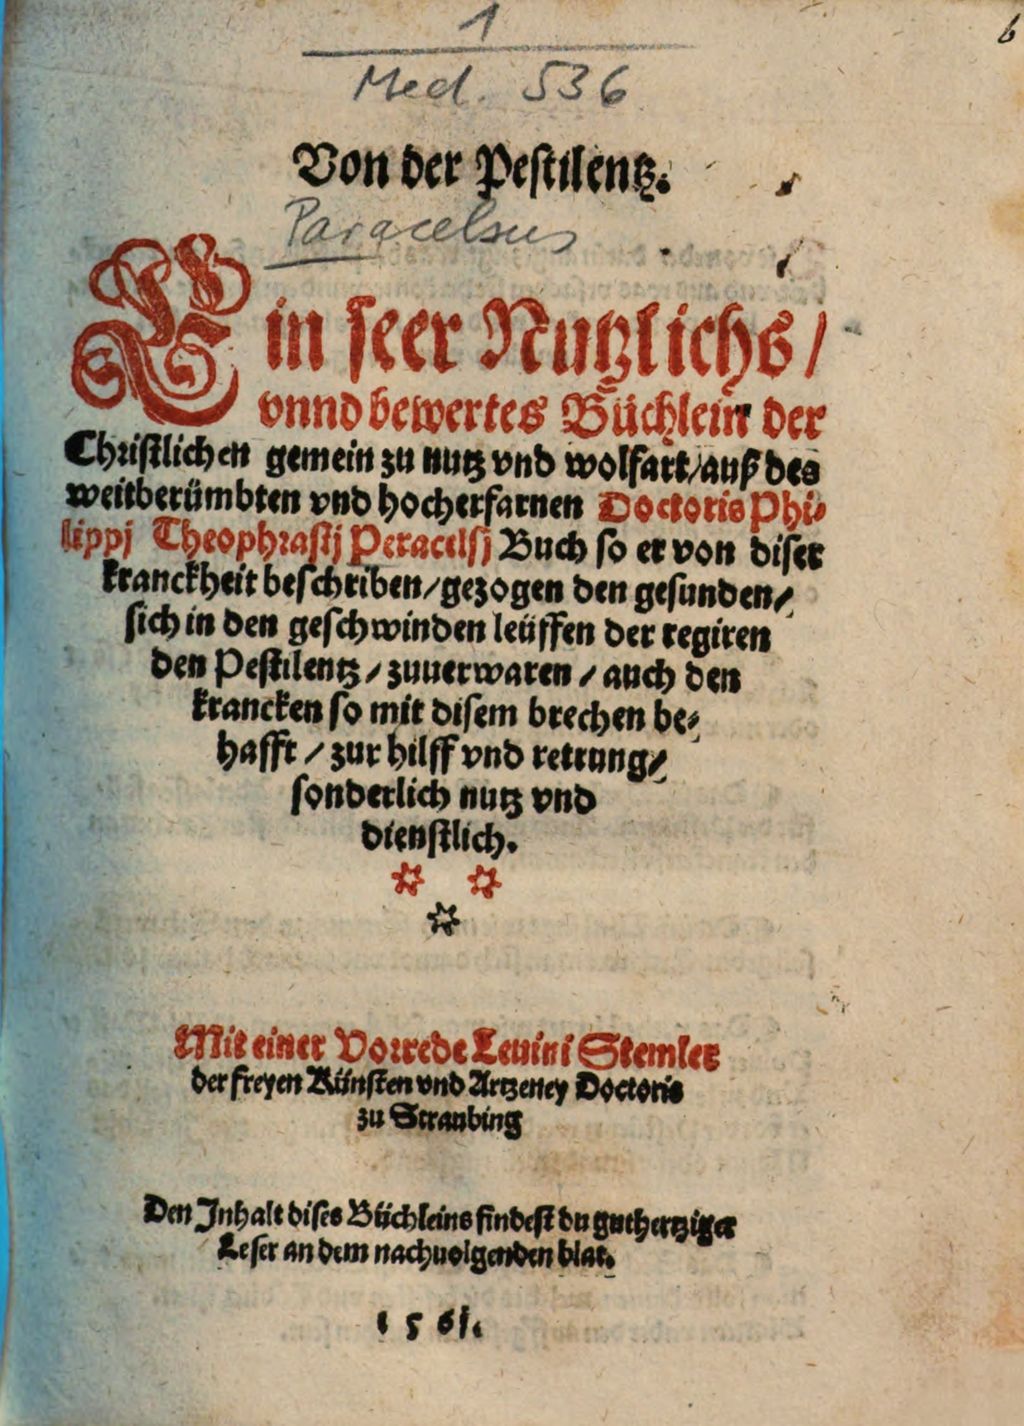 1
Med. 536
6
Von der Pestilentz.
Paracelsus
Ein seer Nutzlichs/
vnnd bewertes Büchlein der
Christlichen gemein zu nutz vnd wolfart/auß des
weitberümbten vnd hocherfarnen Doctoris Phi-
lippj Theophrastj Peracelsj Buch so er von diser
kranckheit beschriben/gezogen den gesunden/
sich in den geschwinden leüffen der regiren
den Pestilentz/zuuerwaren/auch den
krancken so mit disem brechen be-
hafft/zur hilff vnd rettung/
sonderlich nutz vnd
dienstlich.
Mit einer Vorrede Leuini Stemler
der freyen Künsten vnd Artzeney Doctoris
zu Straubing
Den Inhalt dises Büchleins findest du guthertziger
Leser an dem nachuolgenden blat.
1561.